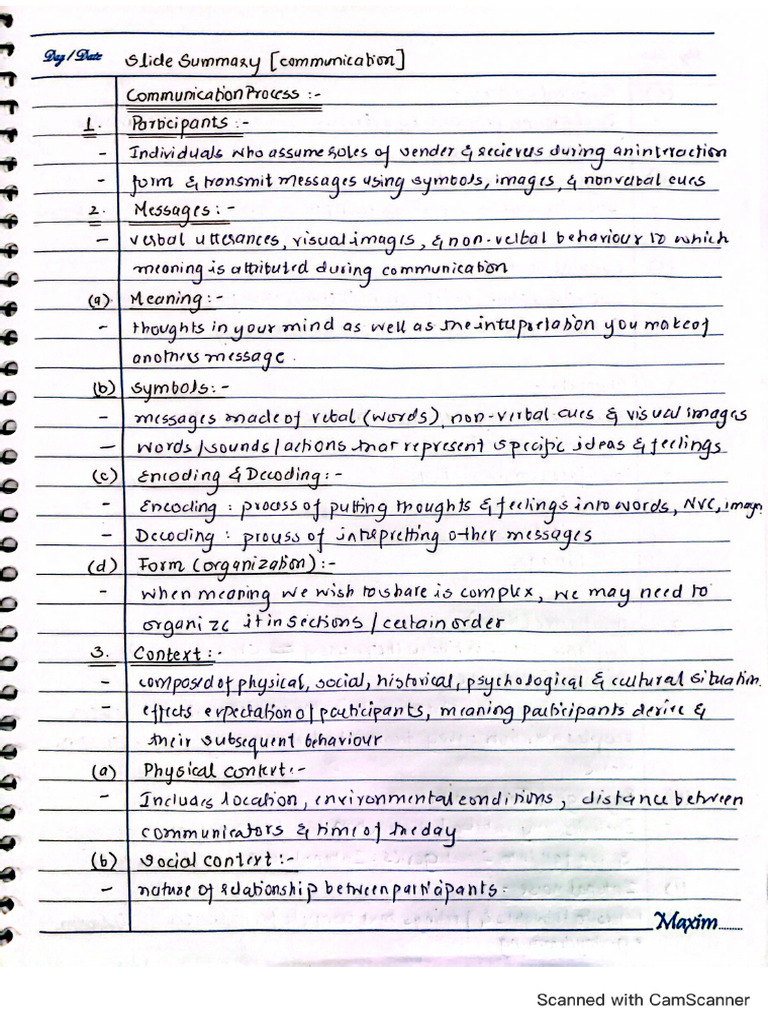 Day / Date
Slide Summary [communication]
Communication Process :-
1. Participants :-
- Individuals who assume roles of sender & recievers during an interaction
- form & transmit messages using symbols, images, & nonverbal cues
2. Messages :-
- verbal utterances, visual images, & non-verbal behaviour to which
meaning is attributed during communication
(a) Meaning :-
- thoughts in your mind as well as the interpretation you make of
anothers message.
(b) Symbols :-
- messages made of verbal (words), non-verbal cues & visual images
- words/sounds/actions that represent specific ideas & feelings
(c) Encoding & Decoding :-
- Encoding : process of putting thoughts & feelings into words, NVC, images
- Decoding : process of interpretting other messages
(d) Form (organization) :-
- when meaning we wish to share is complex, we may need to
organize it in sections / certain order
3. Context :-
- composed of physical, social, historical, psychological & cultural situation.
- effects expectation of participants, meaning participants derive &
their subsequent behaviour
(a) Physical context :-
- Includes location, environmental conditions, distance between
communicators & time of the day
(b) Social context :-
- nature of relationship between participants.
Maxim
Scanned with CamScanner